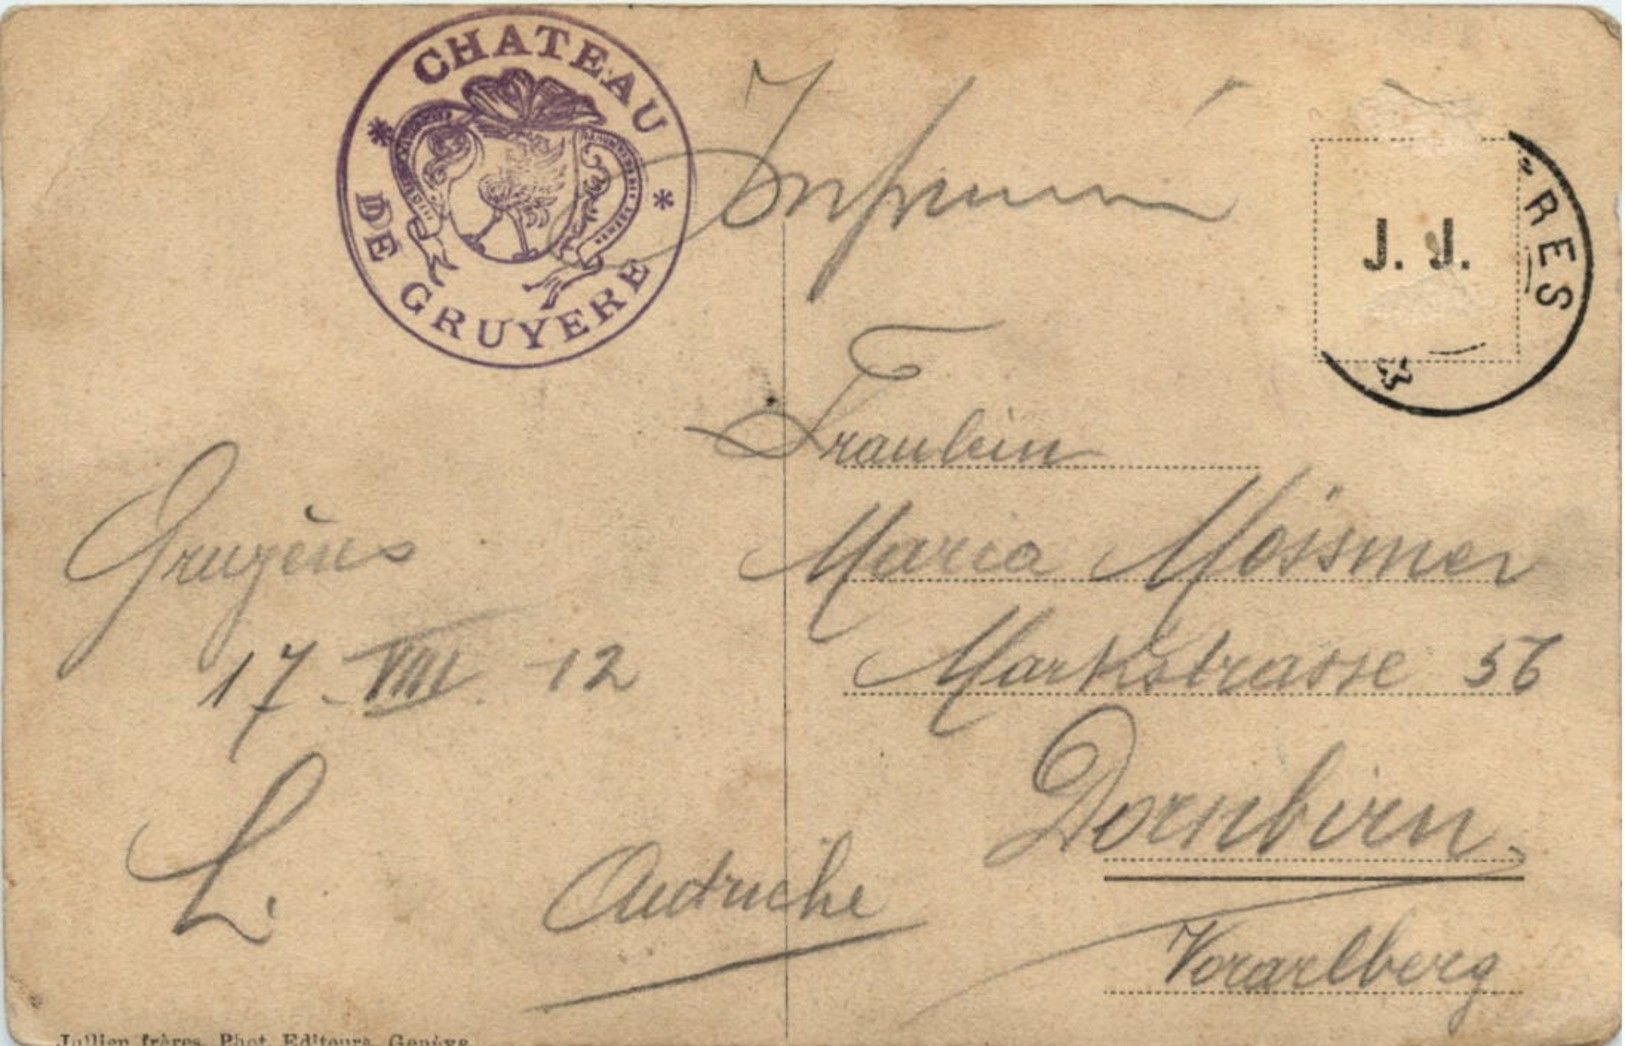 CHATEAU
DE GRUYERE
Imprimé
J. J.
RES
Fräulein
Maria Mossmer
Marktstrasse 56
Dornbirn.
Vorarlberg
Autriche
Gruyères
17. VIII. 12
L.
Jullien frères, Phot. Editeurs, Genève